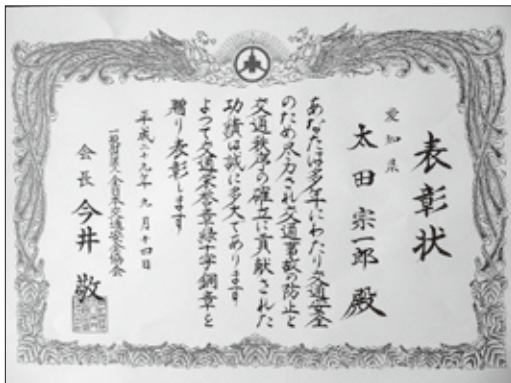 表彰状
愛知県
太田宗一郎 殿
あなたは多年にわたり交通安全
のため尽力され交通事故の防止と
交通秩序の確立に貢献された
功績は誠に多大であります
よって交通栄誉章緑十字銅章を
贈り表彰します
平成二十九年九月十四日
一般財団法人全日本交通安全協会
会長 今井 敬